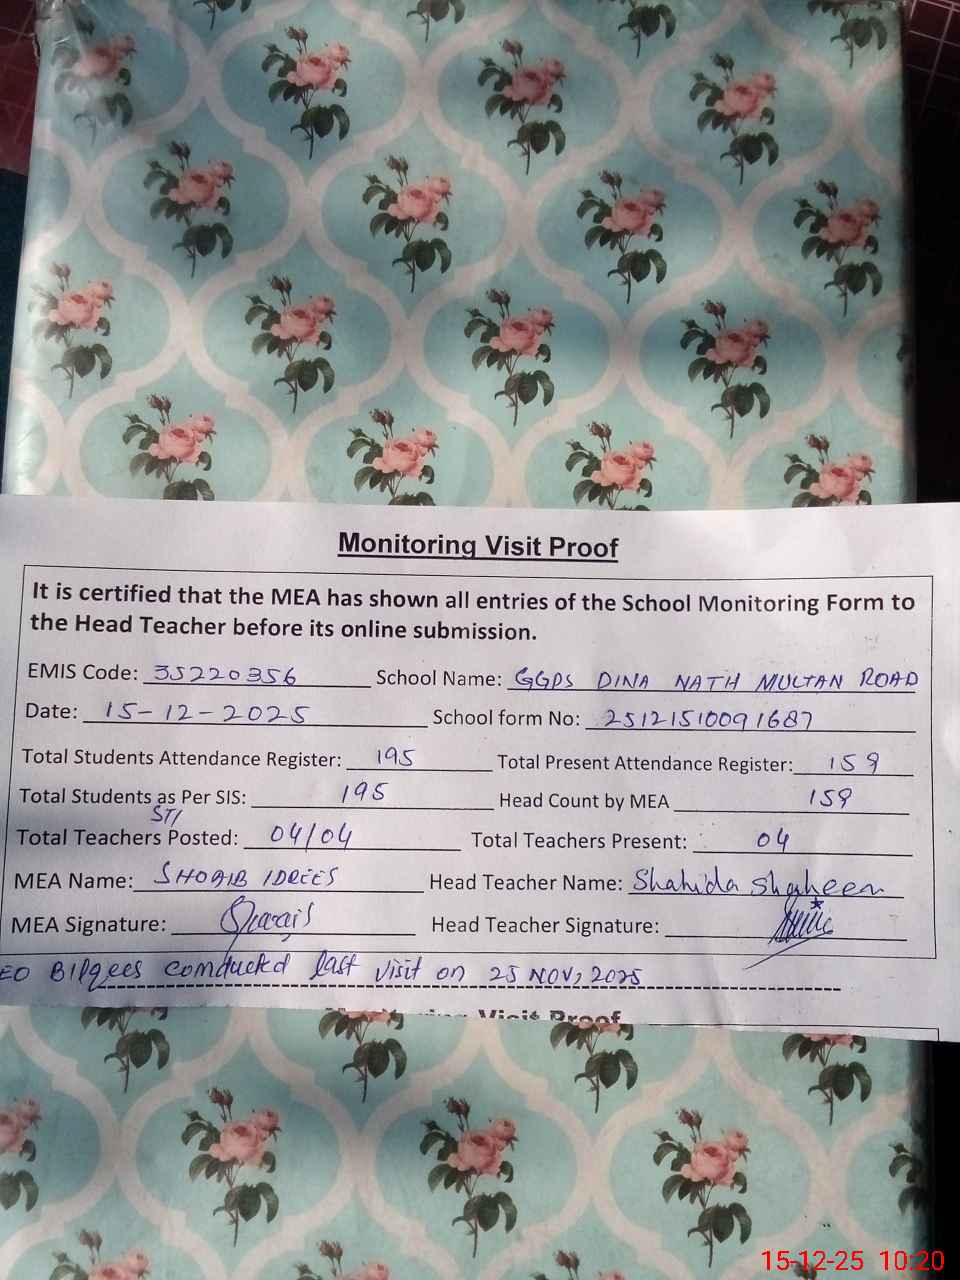 Monitoring Visit Proof
It is certified that the MEA has shown all entries of the School Monitoring Form to
the Head Teacher before its online submission.
EMIS Code: 35220356 School Name: GGPS DINA NATH MULTAN ROAD
Date: 15-12-2025 School form No: 25121510091687
Total Students Attendance Register: 195 Total Present Attendance Register: 159
Total Students as Per SIS: 195 Head Count by MEA 159
STI
Total Teachers Posted: 04/04 Total Teachers Present: 04
MEA Name: SHOAIB IDREES Head Teacher Name: Shahida Shaheen
MEA Signature: Head Teacher Signature:
EO Bilqees conducted last visit on 25 NOV, 2025
Monitoring Visit Proof
15-12-25 10:20